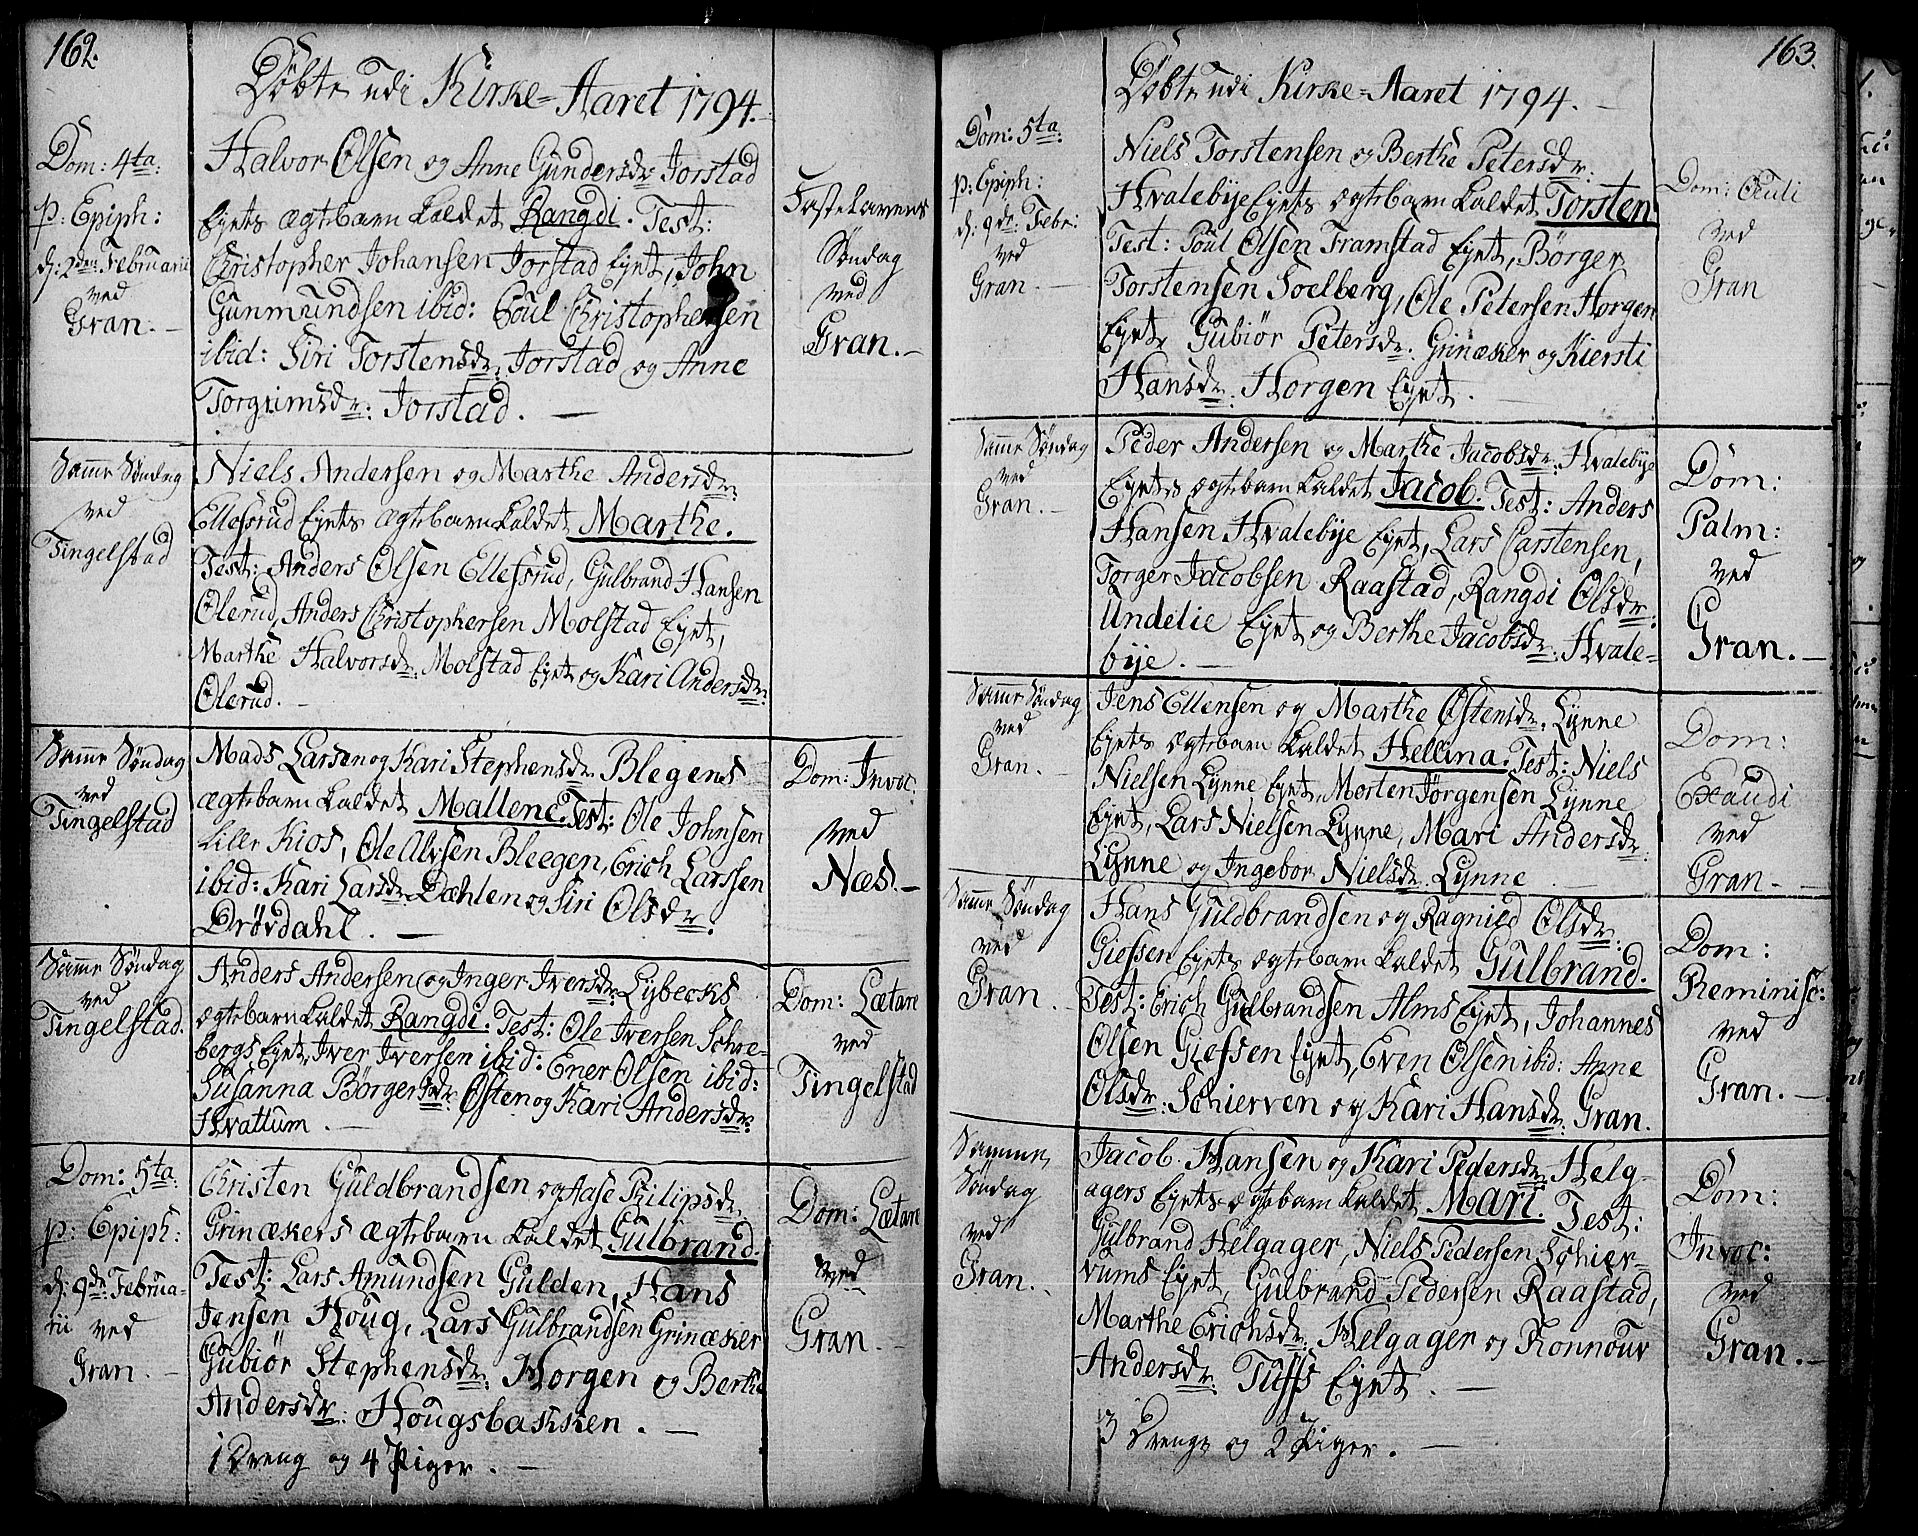 162.
Döbte udi Kirke-Aaret 1794.
Dom: 4ta:
p: Epiph:
d: 2den Februarii
ved
Gran.
Halvor Olsen og Anne Gundersdr: Jorstad
Eyets ægtebarn kaldet Rangdi. Test:
Christopher Johansen Jorstad Eyet, John
Gunmundsen ibid: Poul Christophersen
ibid: Siri Torstensdr. Jorstad og Anne
Torgrimsdr: Jorstad.
Fastelavens
Søndag
ved
Gran.
Samme Søndag
ved
Tingelstad
Niels Andersen og Marthe Andersdr:
Ellefsrud Eyets ægtebarn kaldet Marthe.
Test: Anders Olsen Ellefsrud, Gulbrand Hansen
Olerud, Anders Christophersen Molstad Eyet,
Marthe Halvorsdr: Molstad Eyet og Kari Andersdr:
Olerud.
Samme Søndag
ved
Tingelstad
Mads Larsen og Kari Stephensdr. Blegens
ægtebarn kaldet Mallene. Test: Ole Johnsen
Lille Kios, Ole Alvsen Bleegen, Erich Larssen
ibid: Kari Larsdr. Dæhlen og Siri Olsdr:
Drövdahl.
Dom: Invoc:
ved
Næs.
Samme Søndag
ved
Tingelstad.
Anders Andersen og Inger Iversdr: Lybecks
ægtebarn kaldet Rangdi. Test: Ole Iversen Schre-
bergs Eyet, Iver Iversen ibid: Ener Olsen ibid:
Susanna Börgersdr. Østen og Kari Andersdr:
Hvattum.
Dom: Lætare
ved
Tingelstad
Dom: 5ta:
p: Epiph:
d: 9de Februa-
rii ved
Gran.
Christen Guldbrandsen og Aase Philipsdr.
Grinækers ægtebarn kaldet Gulbrand.
Test: Lars Amundsen Gulden, Hans
Jensen Houg, Lars Gulbrandsen Grinæker
Gubiør Stephensdr: Horgen og Berthe
Andersdr: Hougsbakken.
1 Dreng og 4 Piger.
Dom: Lætare
ved
Gran.
163.
Döbte udi Kirke-Aaret 1794.
Dom: 5ta:
p: Epiph:
d: 9de Febr:
ved
Gran.
Niels Torstensen og Berthe Petersdr:
Hvalebye Eyets ægtebarn kaldet Torsten
Test: Poul Olsen Framstad Eyet, Börger
Torstensen Soelberg, Ole Petersen Horgen
Eyet, Gubiør Petersdr: Grinæker og Kiersti
Hansdr: Horgen Eyet.
Dom: Oculi
ved
Gran
Samme Søndag
ved
Gran.
Peder Andersen og Marthe Jacobsdr. Hvalebye
Eyets ægtebarn kaldet Jacob. Test: Anders
Hansen Hvalebye Eyet, Lars Carstensen,
Torger Jacobsen Raastad, Rangdi Olsdr:
Undelie Eyet og Berthe Jacobsdr: Hvale-
bye.
Dom:
Palm:
ved
Gran.
Samme Søndag
ved
Gran.
Jens Ellensen og Marthe Østensdr. Lynne
Eyets ægtebarn kaldet Hellina. Test: Niels
Nielsen Lynne Eyet, Morten Jørgensen Lynne
Eyet, Lars Nielsen Lynne, Mari Andersdr:
Lynne og Ingebor Nielsdr. Lynne
Dom:
Exaudi
ved
Gran.
Samme Søndag
ved
Gran.
Hans Guldbrandsen og Ragnild Olsdr:
Giefsen Eyets ægtebarn kaldet Gulbrand.
Test: Erich Gulbrandsen Alms Eyet, Johannes
Olsen Giefsen Eyet, Even Olsen ibid: Anne
Olsdr: Schierven og Kari Hansdr: Gran.
Dom:
Reminisc:
ved
Gran.
Samme
Søndag
ved
Gran.
Jacob Hansen og Kari Pedersdr. Helg-
agers Eyets ægtebarn kaldet Mari. Test:
Gulbrand Helgager, Niels Pedersen Schier-
vums Eyet, Gulbrand Pedersen Raastad,
Marthe Erichsdr: Helgager og Ronnour
Andersdr: Tufs Eyet.
3 Drenge og 2 Piger.
Dom:
Invoc:
ved
Gran.